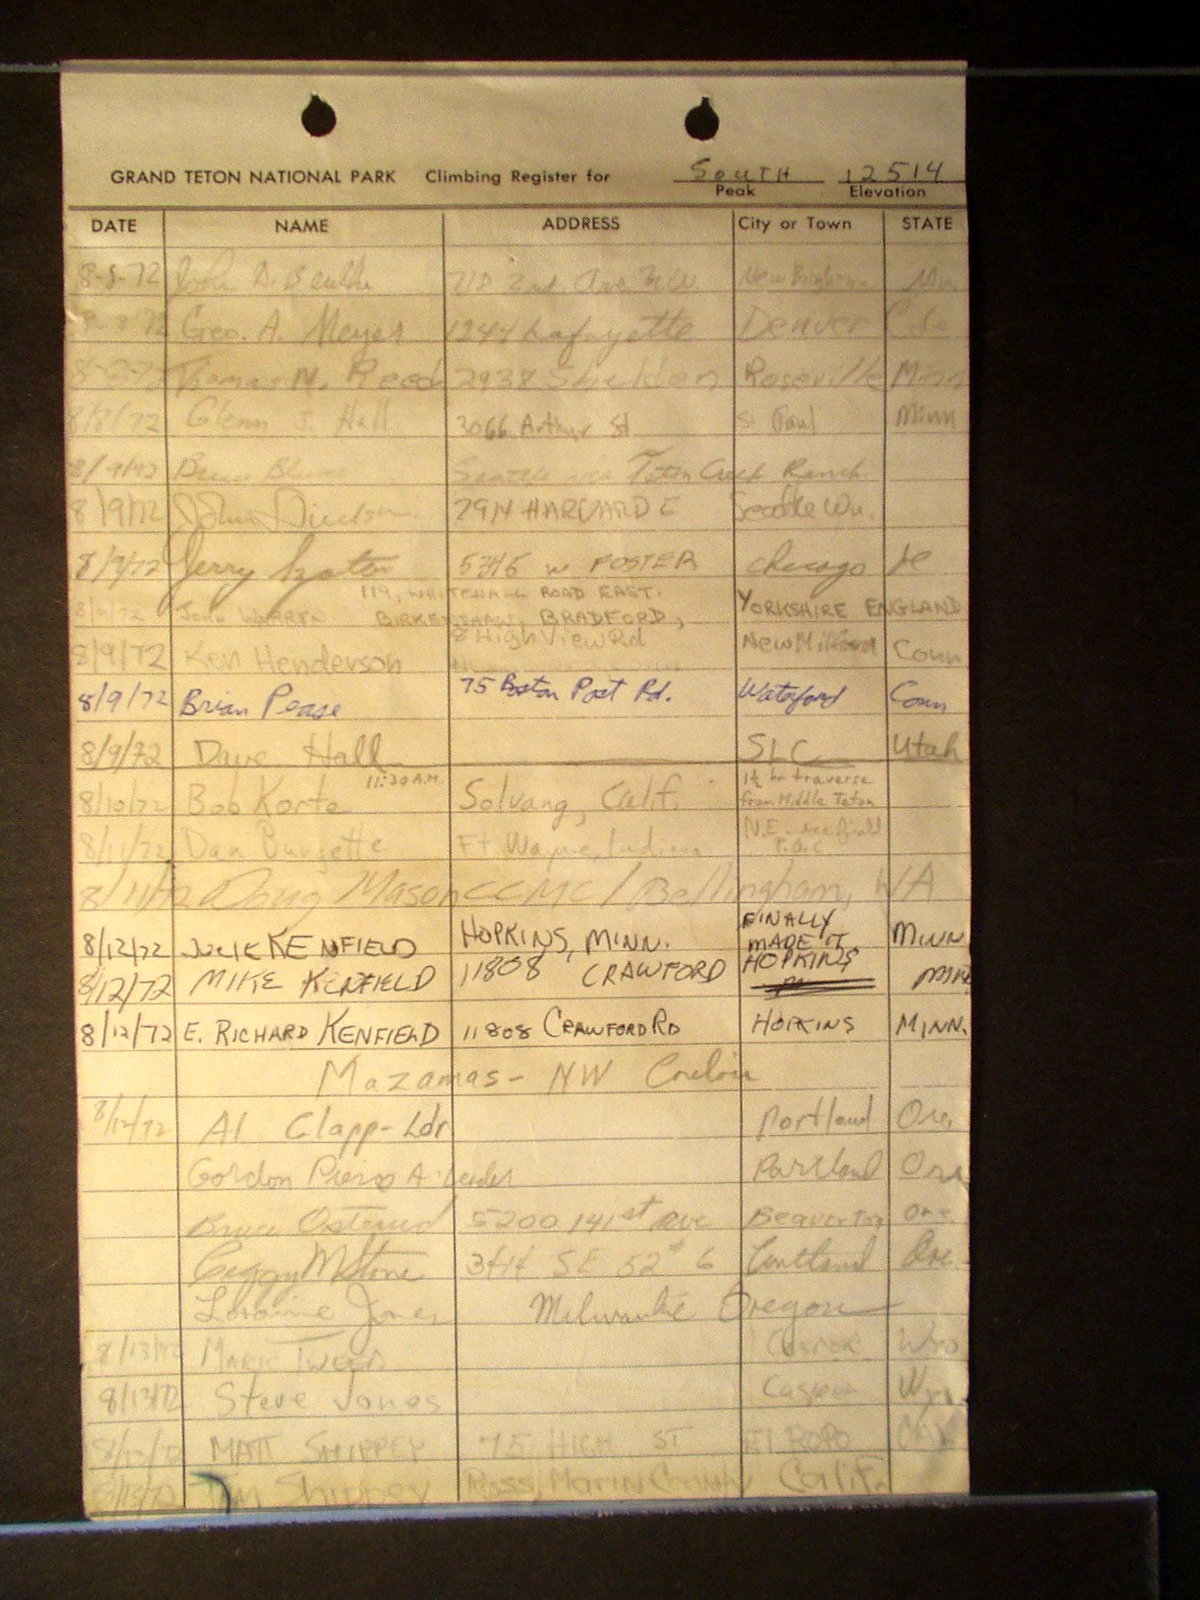 GRAND TETON NATIONAL PARK Climbing Register for SOUTH 12514
Peak Elevation
DATE NAME ADDRESS City or Town STATE
8-8-72 John D. 718 2nd Ave N.W. New Brighton Minn
Geo. A. Meyer 1244 Lafayette Denver Colo
Thomas M. Reed 2938 Sheldon Roseville Minn
8/8/72 Glenn J. Hall 3066 Arthur St St Paul Minn
8/9/72 Seattle via Teton Creek Ranch
8/9/72 John HARVARD E Seattle Wn.
8/9/72 Jerry 5345 W FOSTER Chicago Ill
119, WHITEHALL ROAD EAST.
8/9/72 JOHN WARREN BIRKENSHAW, BRADFORD, YORKSHIRE ENGLAND
8/9/72 Ken Henderson 8 High View Rd New Milford Conn
8/9/72 Brian Pease 75 Boston Post Rd. Waterford Conn
8/9/72 Dave Hall SLC Utah
11:30 A.M.
8/10/72 Bob Korte Solvang, Calif. 1½ hr traverse
from Middle Teton
8/11/72 Dan Burgette Ft. Wayne, Indiana N.E. snowfield
8/11/72 Doug Mason CCMC / Bellingham, WA
8/12/72 JULIE KENFIELD HOPKINS, MINN. FINALLY MADE IT MINN.
8/12/72 MIKE KENFIELD 11808 CRAWFORD HOPKINS MINN
8/12/72 E. RICHARD KENFIELD 11808 CRAWFORD RD HOPKINS MINN.
Mazamas - NW Couloir
8/12/72 Al Clapp - Ldr Portland Ore.
Gordon Pierce A. Leader Portland Ore
Bruce 5200 141st Ave Beaverton ore
Peggy M Stone SE 52nd Portland Ore
Loraine Jones Milwaukie Oregon
8/13/72 MARK TWEED CASPER Wyo
8/13/72 Steve Jones Casper Wyo.
8/13/72 MATT SHIPPEY 75 HIGH ST El ROPO CAL
8/13/72 Shippey Ross, Marin County Calif.